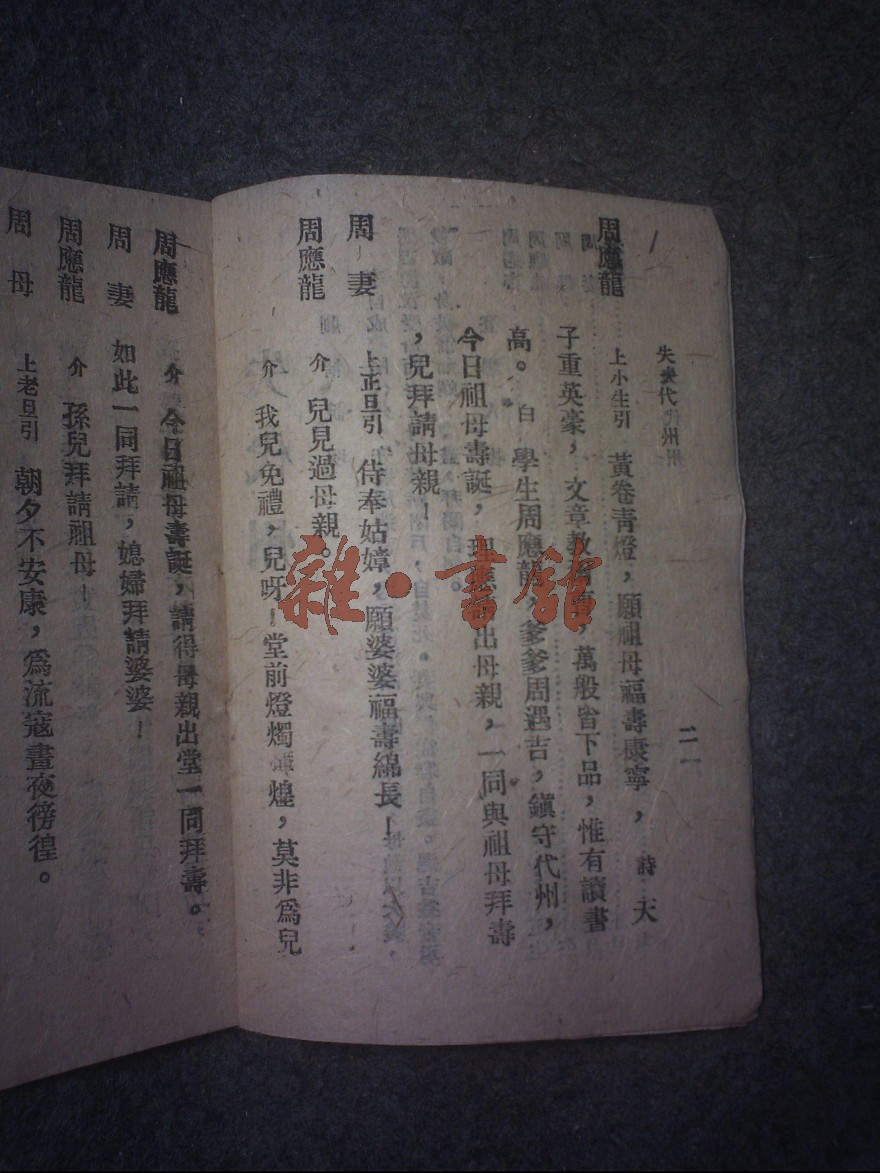 失去代州
二
周應龍 上小生引 黃卷青燈，願祖母福壽康寧， 詩 天
子重英豪，文章教爾曹，萬般皆下品，惟有讀書
高。 白 學生周應龍，爹爹周遇吉，鎮守代州，
今日祖母壽誕，理應請出母親，一同與祖母拜壽
，兒拜請母親！
周 妻 上正旦引 侍奉姑嫜，願婆婆福壽綿長！
周應龍 介 兒見過母親。
介 我兒免禮，兒呀！堂前燈燭輝煌，莫非爲兒
周應龍 介 今日祖母壽誕，請得母親出堂一同拜壽。
周 妻 如此一同拜請，媳婦拜請婆婆！
周應龍 介 孫兒拜請祖母！
周 母 上老旦引 朝夕不安康，爲流寇晝夜徬徨。
雜·書館